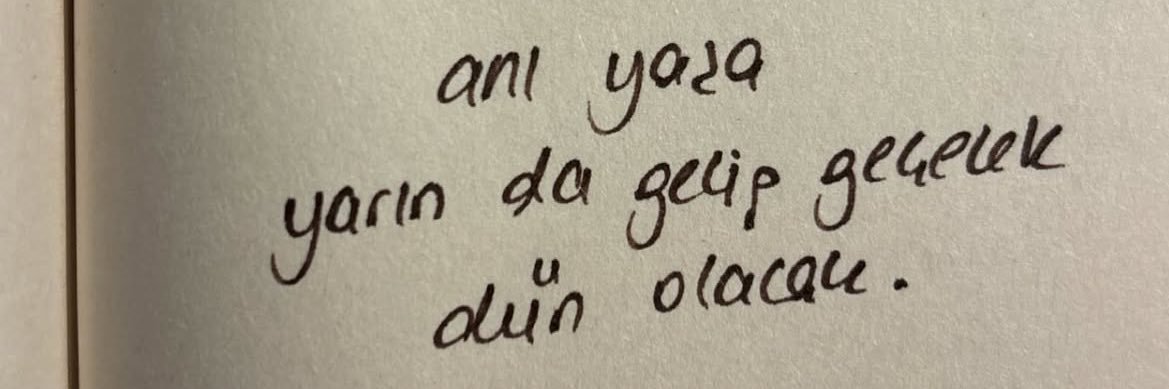 anı yaşa
yarın da gelip geçecek
dün olacak.